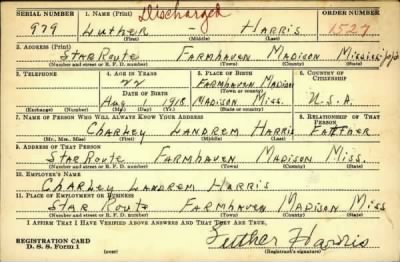 SERIAL NUMBER 1. NAME (Print) Discharged ORDER NUMBER
979 Luther Harris 1527
(First) (Middle) (Last)
2. ADDRESS (Print)
Star Route Farmhaven Madison Mississippi
(Number and street or R. F. D. number) (Town) (County) (State)
3. TELEPHONE 4. AGE IN YEARS 5. PLACE OF BIRTH 6. COUNTRY OF CITIZENSHIP
22 Farmhaven Madison
DATE OF BIRTH (Town or county)
Aug 1918 Madison Miss. U.S.A.
(Exchange) (Number) (Mo.) (Day) (Yr.) (State or country)
7. NAME OF PERSON WHO WILL ALWAYS KNOW YOUR ADDRESS 8. RELATIONSHIP OF THAT PERSON
Charley Landrem Harris Father
(Mr., Mrs., Miss) (First) (Middle) (Last)
9. ADDRESS OF THAT PERSON
Star Route Farmhaven Madison Miss.
(Number and street or R. F. D. number) (Town) (County) (State)
10. EMPLOYER'S NAME
Charley Landrem Harris
11. PLACE OF EMPLOYMENT OR BUSINESS
Star Route Farmhaven Madison Miss
(Number and street or R. F. D. number) (Town) (County) (State)
I AFFIRM THAT I HAVE VERIFIED ABOVE ANSWERS AND THAT THEY ARE TRUE.
REGISTRATION CARD Luther Harris
D. S. S. Form 1 (over) (Registrant's signature)